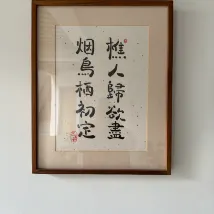 樵人歸欲盡
烟鳥栖初定